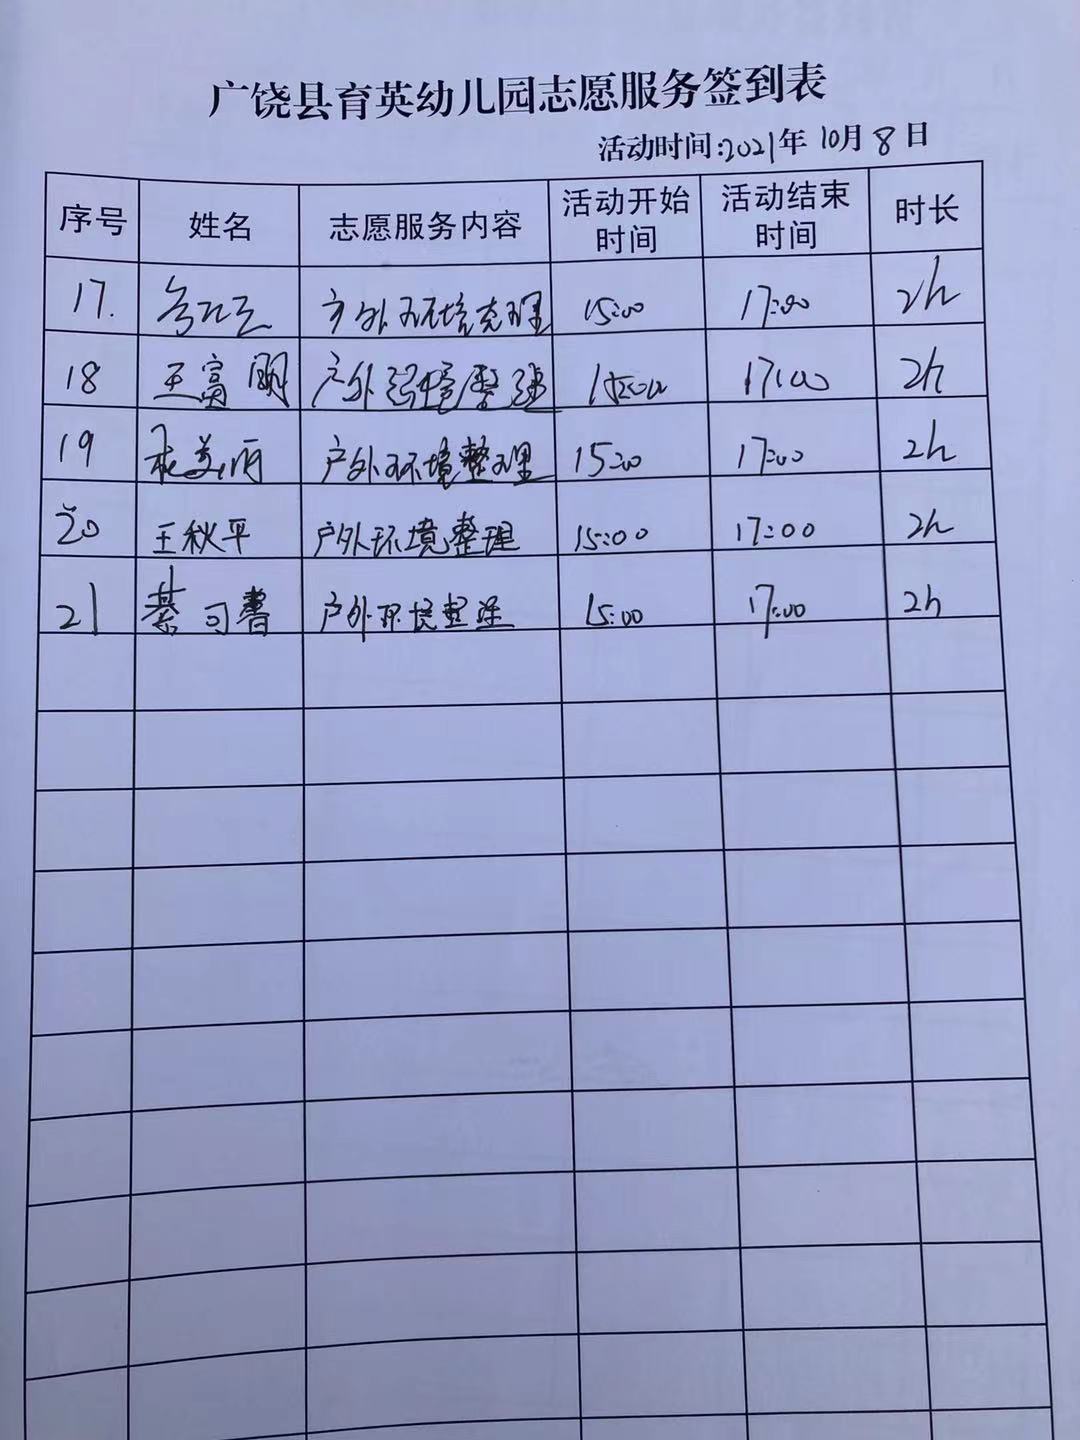 广饶县育英幼儿园志愿服务签到表
活动时间:2021年 10月 8日
序号 姓名 志愿服务内容 活动开始时间 活动结束时间 时长
17. 户外环境整理 15:00 17:00 2h
18 王富明 户外环境整理 15:00 17:00 2h
19 户外环境整理 15:00 17:00 2h
20 王秋平 户外环境整理 15:00 17:00 2h
21 綦司書 户外环境整理 15:00 17:00 2h